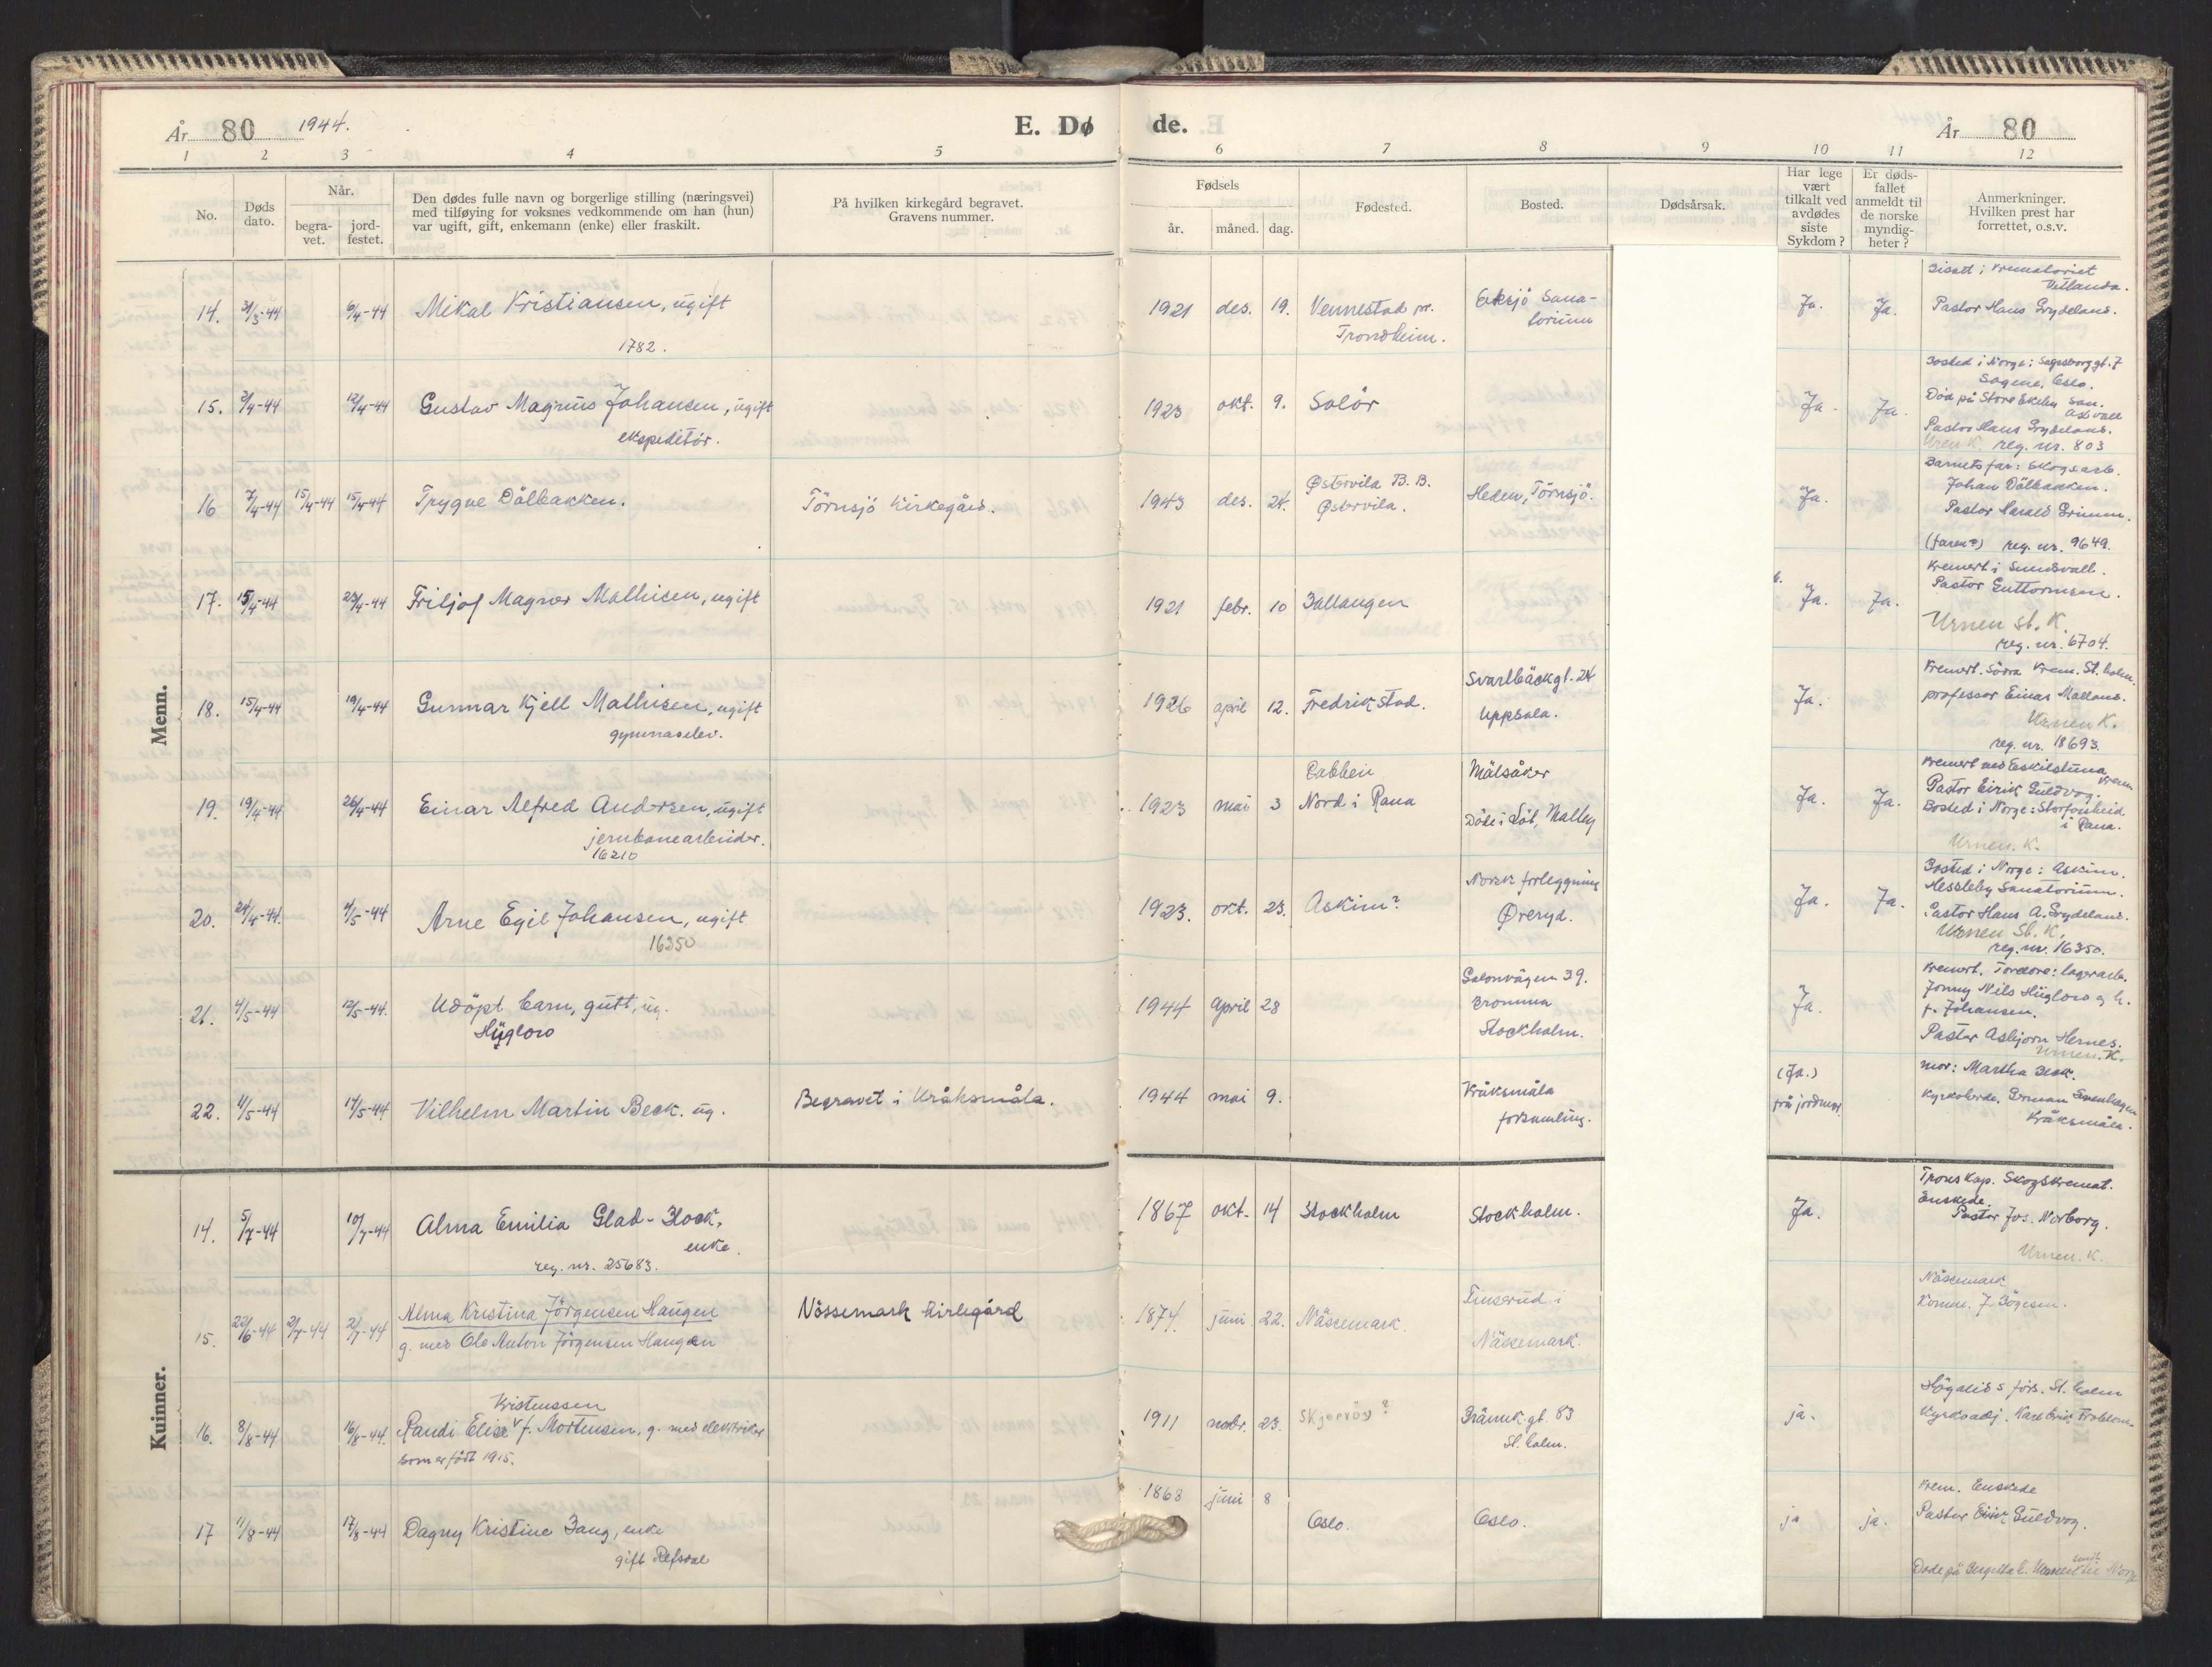 År 80 1944.
E. Dø de.
År 80
1 2 3 4 5 6 7 8 9 10 11 12
No.
Døds dato.
Når.
begra-vet.
jord-festet.
Den dødes fulle navn og borgerlige stilling (næringsvei)
med tilføying for voksnes vedkommende om han (hun)
var ugift, gift, enkemann (enke) eller fraskilt.
På hvilken kirkegård begravet.
Gravens nummer.
Fødsels
år. måned. dag.
Fødested.
Bosted.
Dødsårsak.
Har lege
vært
tilkalt ved
avdødes
siste
Sykdom?
Er døds-
fallet
anmeldt til
de norske
myndig-
heter?
Anmerkninger.
Hvilken prest har
forrettet, o.s.v.
Menn.
14. 31/3-44 6/4-44 Mikal Kristiansen, ugift
1782.
1921 des. 19. Vennestad pr.
Trondheim.
Eksjö Sana-
torium
Ja. Ja.
Bisatt i Krematoriet
Vetlanda.
Pastor Hans Grydeland.
15. 2/4-44 12/4-44 Gustav Magnus Johansen, ugift
ekspeditör.
1923 okt. 9. Solör
Ja. Ja.
Bosted i Norge: Sagesborggt. 7
Sagene, Oslo.
Död på Store Ekeby San.
Axvall
Pastor Hans Grydeland.
Uren K. reg. nr. 803
16 7/4-44 15/4-44 15/4-44 Trygve Dölbakken.
Törnsjö Kirkegård.
1943 des. 24. Østervila B.B.
Østervila.
Heden, Törnsjö.
Ja.
Barnets far: Skogsarb.
Johan Dölbakken.
Pastor Harald Grimm.
(faren?) reg. nr. 9649.
17. 15/4-44 23/4-44 Fritjof Magner Mathisen, ugift
1921 febr. 10 Ballangen
Ja. Ja.
Kremert i Sundsvall.
Pastor Guttormsen.
Urnen St. K.
reg. nr. 6704.
18. 15/4-44 19/4-44 Gunnar Kjell Mathisen, ugift
gymnaselev.
1926 april 12. Fredrikstad.
Svartbäckgt. 24
Uppsala.
Ja.
Kremert. Södra Krem. St. holm.
professor Einar Molland.
Urnen K.
reg. nr. 18693.
19. 19/4-44 26/4-44 Einar Alfred Andersen, ugift
jernbanearbeider.
16210
1923 mai 3 Dabbein
Nord i Rana
Mälsåker
Döde i Löt, Malby
Ja. Ja.
Kremert ved Eskilstuna
Krem.
Pastor Eirik Guldvog.
Bosted i Norge: Storforsheid
i Rana.
Urnen. K.
20. 24/4-44. 4/5-44 Arne Egil Johansen, ugift
16350
1923. okt. 23. Askim?
Norsk forleggning
Øreryd.
Ja. Ja.
Bosted i Norge: Askim.
Hessleby Sanatorium.
Pastor Hans A. Grydeland.
Urnen St. K.
reg. nr. 16350.
21. 4/5-44 12/5-44. Udöpt barn, gutt, ug.
Hügloro
1944 April 28
Galonvägen 39.
Bromma
Stockholm.
Ja.
Kremert. Foreldre: lagerarb.
Jonny Nils Hügloro og h.
f. Johansen.
Pastor Asbjörn Hernes.
Urnen. K.
22. 11/5-44 14/5-44 Vilhelm Martin Beck. ug.
Begravet i Kråksmåla.
1944 mai 9.
Kråksmåla
forsamling.
(Ja.)
frå jordmor.
mor: Martha Beck.
Kyrkoherde.
Kråksmåla.
Kvinner.
14. 5/7-44 10/7-44 Alma Emilia Glad-Block,
enke.
reg. nr. 25683.
1867 okt. 14 Stockholm
Stockholm.
Ja.
Trons Kap. Skogskremat.
Enskede.
Pastor Jos. Norborg.
Urnen. K.
15. 22/6-44 2/7-44 2/7-44 Alma Kristina Jörgensen Haugen
g. med Ole Anton Jörgensen Haugen
Nössemark kirkegård
1874. juni 22. Nässemark.
Finserud i
Nässemark.
Nässemark.
Komm. J. Bögesen.
16. 8/8-44 16/8-44. Kristenssen
Randi Elise f. Mortensen, g. med elektriker
som er född 1915.
1911 nobr. 23. Skjervöy?
Brännk. gt. 83
St. holm.
ja.
Högalids förs. St. holm
Kyrkoadj. Karl Erik
17 11/8-44 17/8-44 Dagny Kristine Bang, enke
gift Refsdal
1868 juni 8
Oslo.
Oslo.
ja ja.
Krem. Enskede
Pastor Eirik Guldvog.
Döde på Urnen sendt til Norge